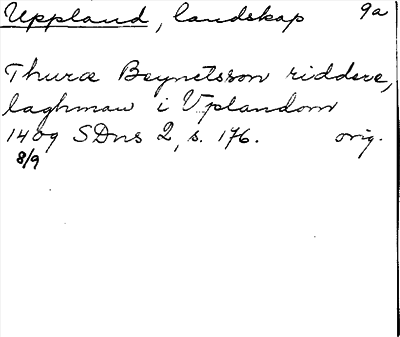 Uppland, landskap 9a
Thuræ Beynetsson riddere,
laghman i Vplandom
1409 SDns 2, s. 176. orig.
8/9